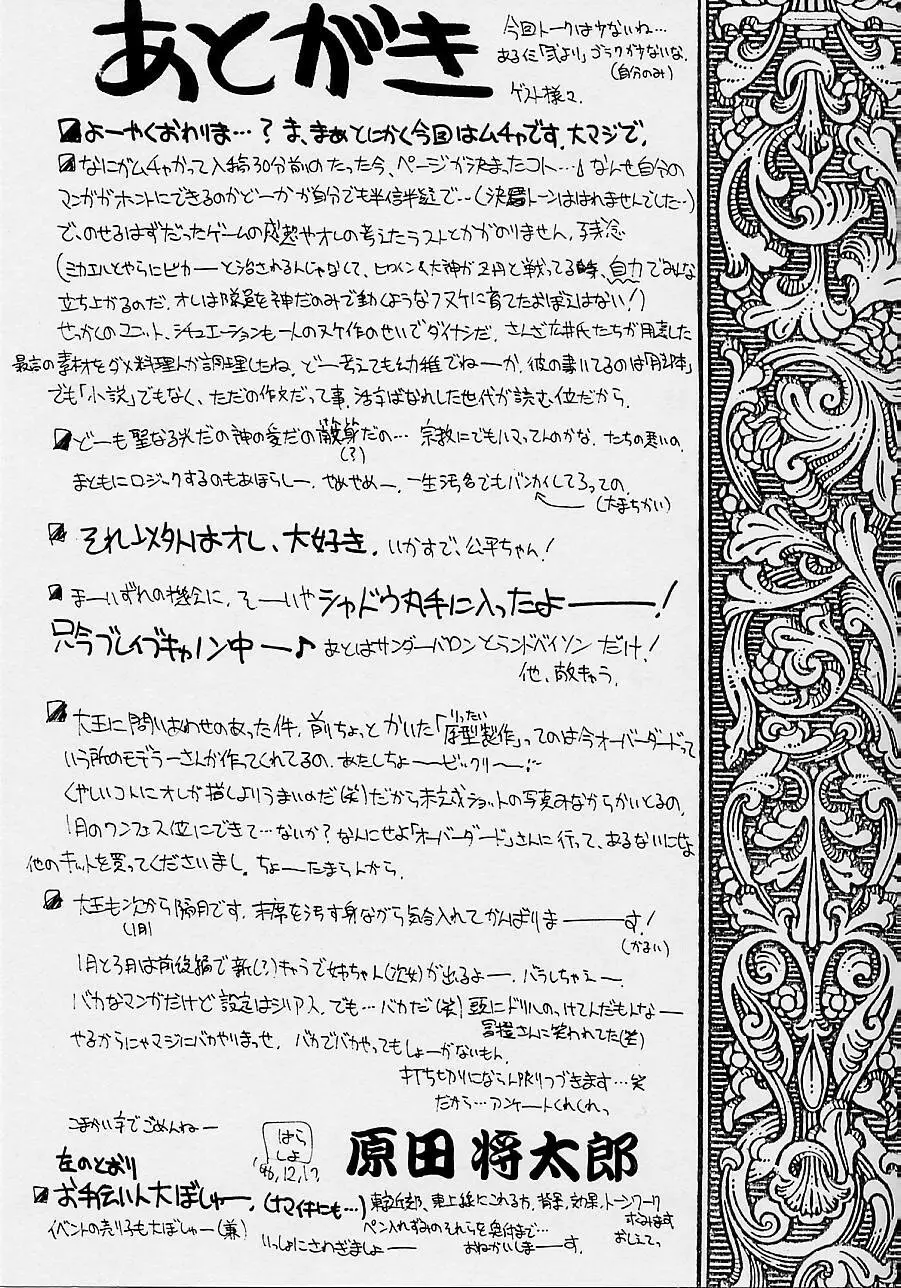 あとがき
今回トークは少ないね…
あるに「弐より」ゴラクが少ないな.
(自分のみ)
ゲスト様々.
よーやくおわりま…? ま、まあとにかく今回はムチャです. 大マジで.
なにがムチャかって入稿30分前のたった今、ページが決まったコト…♪ なんせ自分の
マンガがホントにできるのかどーかが自分でも半信半疑で…(決局トーンははれませんでした…)
で、のせるはずだったゲームの感想やオレの考えたラストとかがのりません. 残念
(ミカエルとやらにピカーーと治されるんじゃなくて、ヒロイン&大神が2人と戦ってる時、自力でみんな
立ち上がるのだ. オレは隊員を神だのみで動くようなフヌケに育てたおぼえはない!)
せっかくのユニット、シチュエーションも一人のヌケ作のせいでダイナシだ. さんざ広井氏たちが用意した
最高の素材をダメ料理人が調理したね. どー考えても幼稚でねーか. 彼の書いてるのは「脚本」
でも「小説」でもなく、ただの作文だって事. 活字ばなれした世代が読む位だから.
どーも聖なる光だの神の愛だの だの… 宗教にでもハマってんのかな. たちの悪いの.
(?)
まともにロジックするのもあほらしー. やめやめー. 一生汚名でもバンカイしてろっての.
(大まちがい)
それ以外はオレ、大好き. いかすで、公平ちゃん!
まーいずれの機会に. そーいや シャドウ丸手に入ったよーーー!
只今ブレイブキャノン中ー♪ あとはサンダーバロンとランドバイソンだけ!
他、敵きゃら.
大王に問いあわせのあった件. 前ちょっとかいた「原型製作」ってのは今オーバーダードって
りったい
いう所のモデラーさんが作ってくれてるの. あたしちょーービックリーー
くやしいコトにオレが描くよりうまいのだ(笑) だから未完成ショットの写真みながらかいとるの.
1月のワンフェス位にできて…ないか? なんにせよ「オーバーダード」さんに行って、あるないにせよ
他のキットを買ってくださいまし. ちょーたまらんから.
大王も次から隔月です. 末席を汚す身ながら気合入れてがんばりまーーーす!
(1月)
(かるい)
1月と3月は前後編で新(?)きゃらで姉ちゃん(次女)が出るよー. バラしちゃえー
バカなマンガだけど設定はシリアス. でも…バカだ(笑) 頭にドリルのっけてんだもんなー
冨樫さんに笑われてた(笑)
やるからにゃマジにバカやりまっせ. バカでバカやってもしょーがないもん.
打ち切りにならん限りつづきます…笑
だから…アンケートくれくれっ
こまかい字でごめんねー
はら
しょ
'96.12.17
原田将太郎
左のとおり
お手伝い人大ぼしゅー. (ナマイキにも…) 東京近郊、東上線にこれる方. 背景、効果、トーンワーク
するみます
おしえてっ
イベントの売り子も大ぼしゅー(兼)
ペン入れずみのそれらを受付まで…
いっしょにさわぎましょーー
おねがいしまーす.